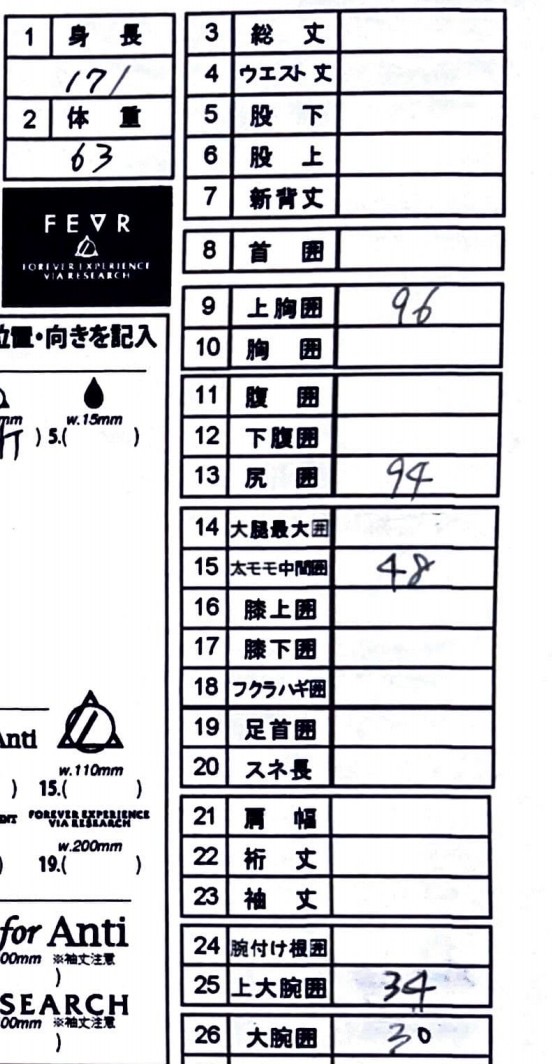 1 身長
171
2 体重
63
FEVR
FOREVER EXPERIENCE
VIA RESEARCH
位置・向きを記入
w.15mm
) 5.( )
Anti
w.110mm
) 15.( )
FOREVER EXPERIENCE
VIA RESEARCH
w.200mm
) 19.( )
for Anti
00mm ※袖丈注意
)
SEARCH
00mm ※袖丈注意
)
3 総丈
4 ウエスト丈
5 股下
6 股上
7 新背丈
8 首囲
9 上胸囲 96
10 胸囲
11 腹囲
12 下腹囲
13 尻囲 94
14 大腿最大囲
15 太モモ中間囲 48
16 膝上囲
17 膝下囲
18 フクラハギ囲
19 足首囲
20 スネ長
21 肩幅
22 裄丈
23 袖丈
24 腕付け根囲
25 上大腕囲 34
26 大腕囲 30